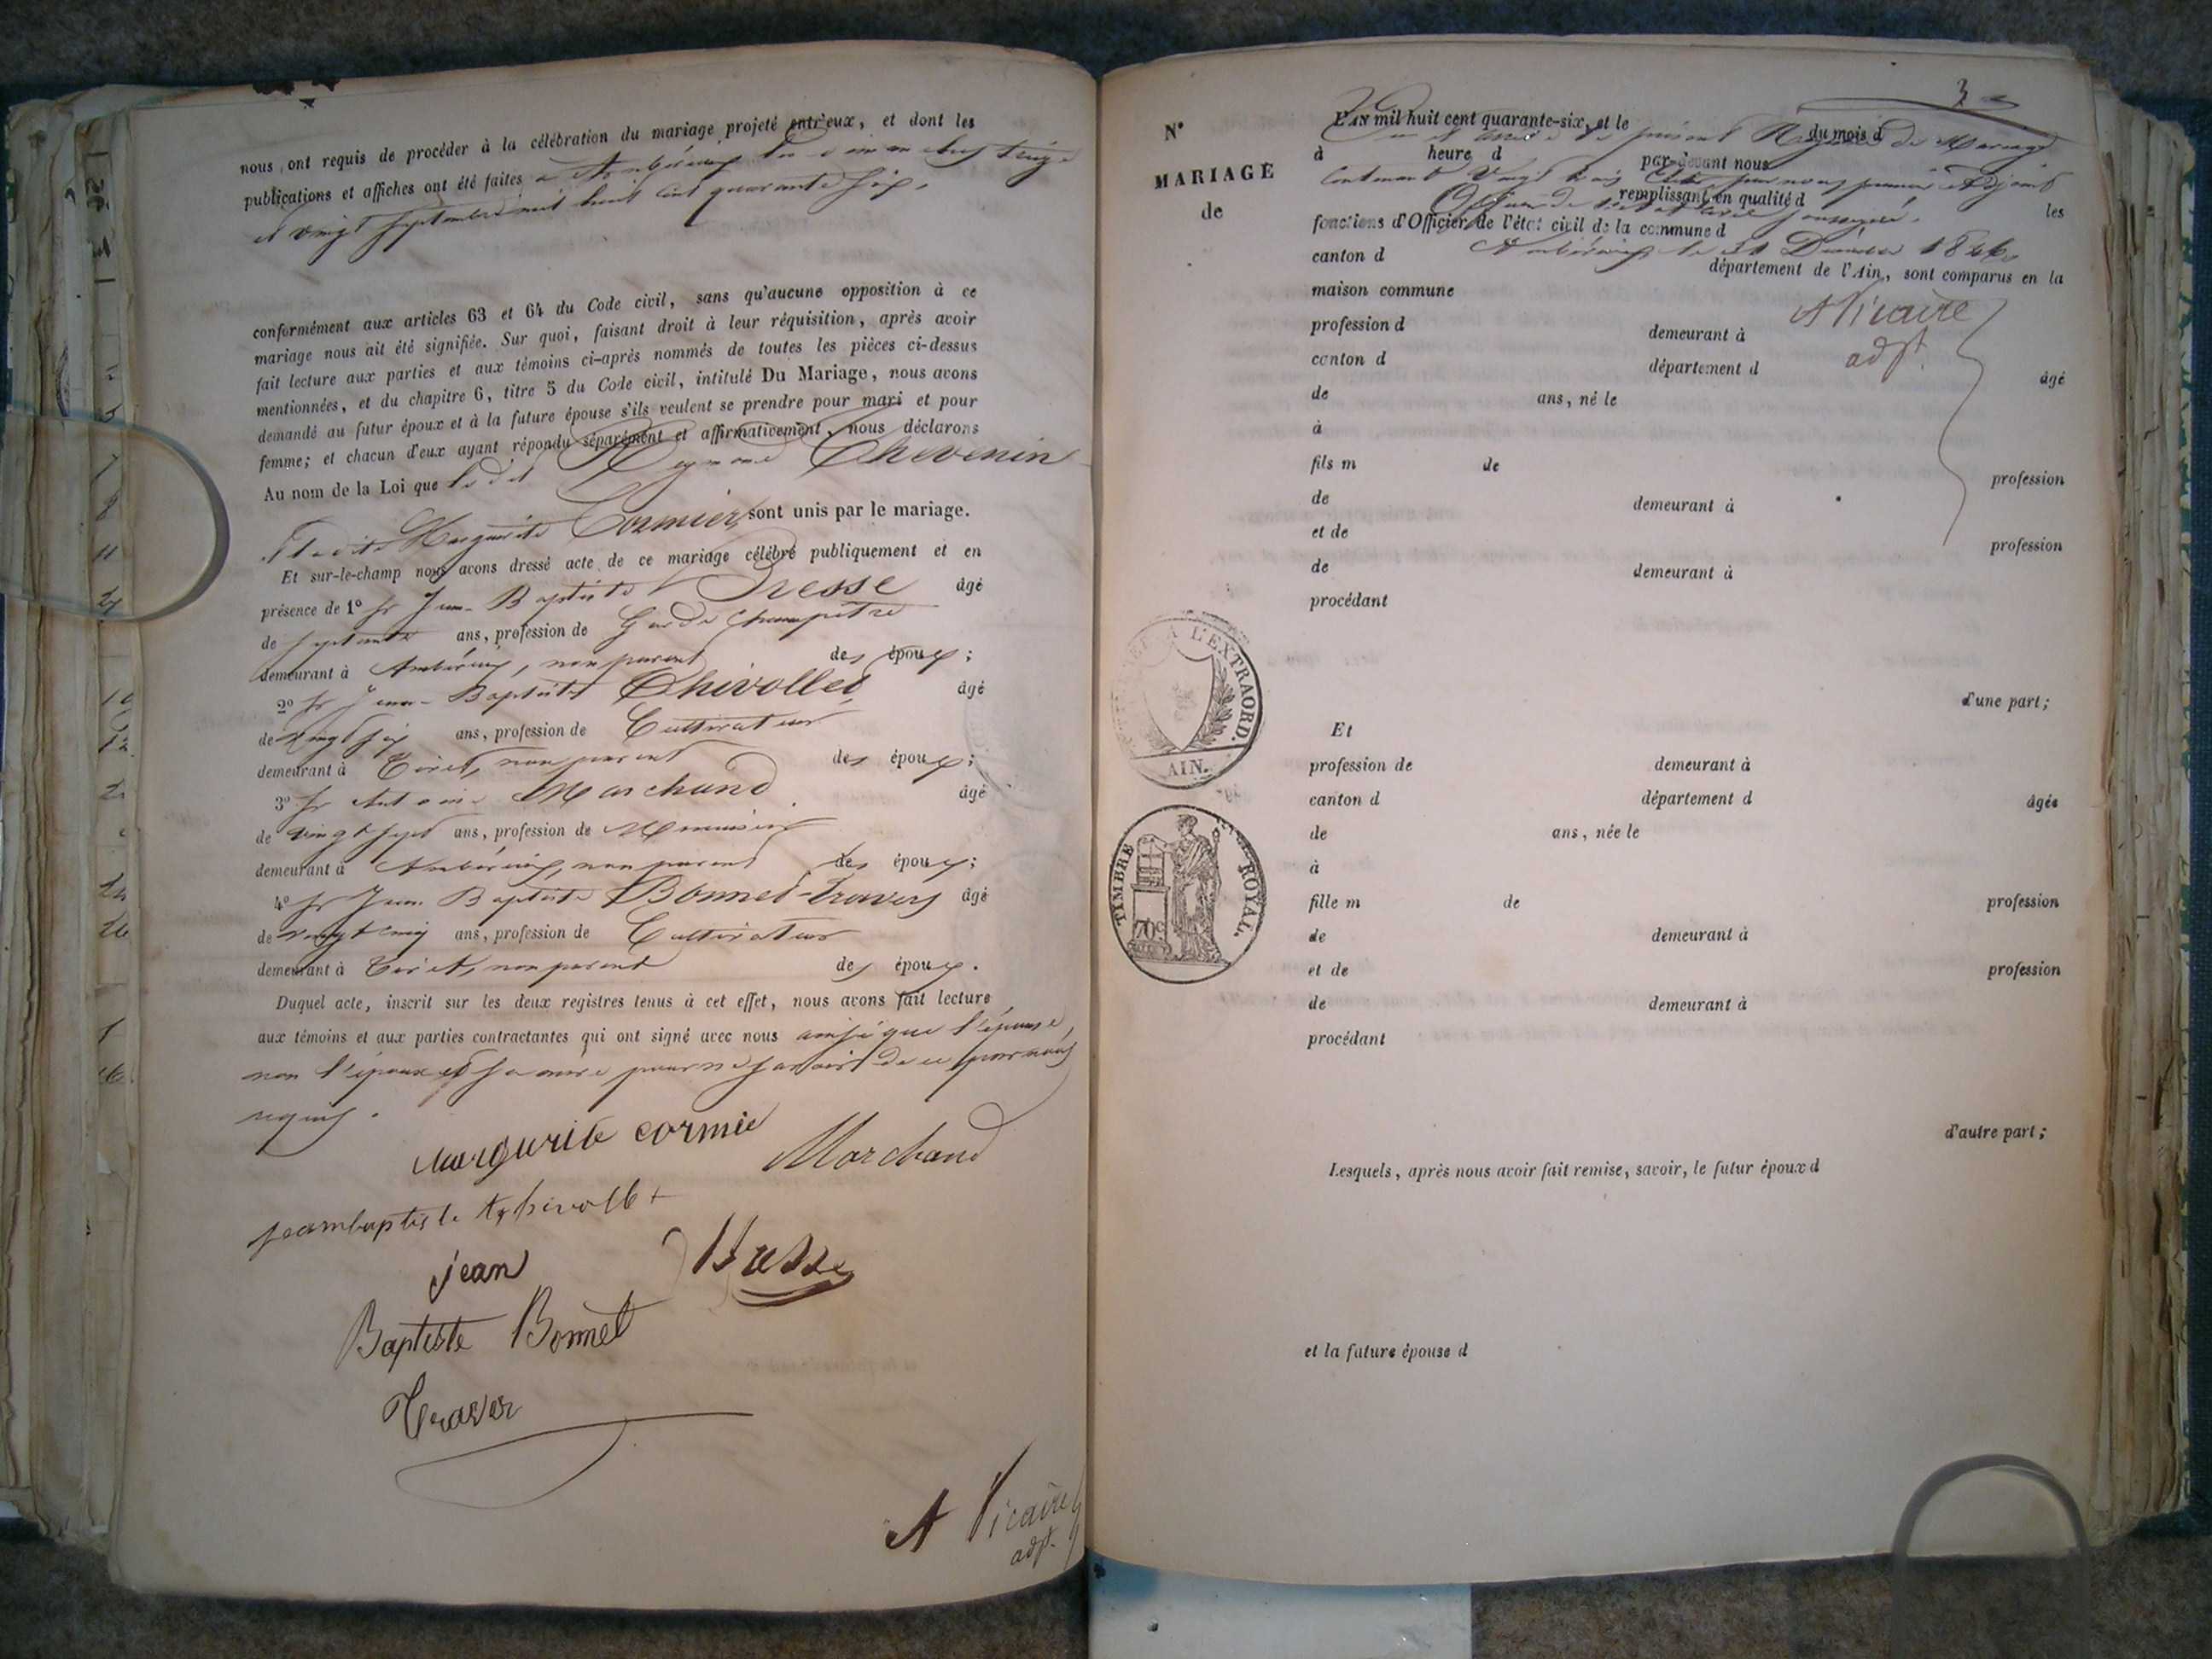 nous ont requis de procéder à la célébration du mariage projeté entr'eux, et dont les
publications et affiches ont été faites à Ambérieux les dimanches treize
et vingt septembre mil huit cent quarante six,
conformément aux articles 63 et 64 du Code civil, sans qu'aucune opposition à ce
mariage nous ait été signifiée. Sur quoi, faisant droit à leur réquisition, après avoir
fait lecture aux parties et aux témoins ci-après nommés de toutes les pièces ci-dessus
mentionnées, et du chapitre 6, titre 5 du Code civil, intitulé Du Mariage, nous avons
demandé au futur époux et à la future épouse s'ils veulent se prendre pour mari et pour
femme; et chacun d'eux ayant répondu séparément et affirmativement, nous déclarons
Au nom de la Loi que le dit Reymond Chevenin
et la dite Marguerite Cormier sont unis par le mariage.
Et sur-le-champ nous avons dressé acte de ce mariage célébré publiquement et en
présence de 1º Sr Jean-Baptiste Dresse âgé
de septante ans, profession de Garde Champêtre
demeurant à Ambérieux, non parent des époux;
2º Sr Jean-Baptiste Chivollet âgé
de vingt six ans, profession de Cultivateur
demeurant à Tiret, non parent des époux;
3º Sr Antoine Marchand âgé
de vingt sept ans, profession de Menuisier
demeurant à Ambérieux, non parent des époux;
4º Sr Jean Baptiste Bonnet-travers âgé
de vingt cinq ans, profession de Cultivateur
demeurant à Tiret, non parent des époux.
Duquel acte, inscrit sur les deux registres tenus à cet effet, nous avons fait lecture
aux témoins et aux parties contractantes qui ont signé avec nous ainsi que l'épouse,
non l'époux et sa mère pour ne savoir de ce par nous
requis.
Margurite cormie
Marchand
jeambaptiste
jean
Baptiste Bonnet
Traver
A Vicaire
adjt
3
Nº
MARIAGE
de
L'AN mil huit cent quarante-six, et le du mois d
Clos et arrêté le présent Registre de Mariage
à heure d par-devant nous
Contenant Vingt trois Actes par nous premier Adjoint
remplissant en qualité d les
Officier de l'état civil soussigné.
fonctions d'Officier de l'état civil de la commune d
Ambérieux le 31 Décembre 1846
canton d département de l'Ain, sont comparus en la
maison commune
A Vicaire
adjt
profession d demeurant à
canton d département d âgé
de ans, né le
à
fils m de profession
de demeurant à
et de profession
de demeurant à
procédant
A L'EXTRAORD.
AIN.
d'une part;
Et
profession de demeurant à
canton d département d âgée
de ans, née le
à
TIMBRE ROYAL.
70c
fille m de profession
de demeurant à
et de profession
de demeurant à
procédant
d'autre part;
Lesquels, après nous avoir fait remise, savoir, le futur époux d
et la future épouse d